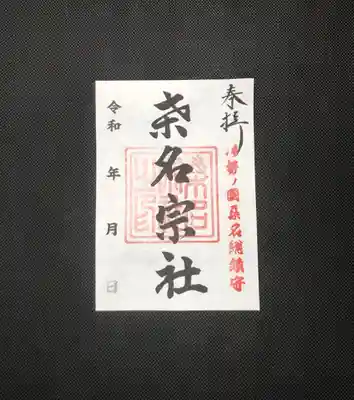 奉拝
伊勢ノ國桑名総鎮守
桑名宗社
令和 年 月 日